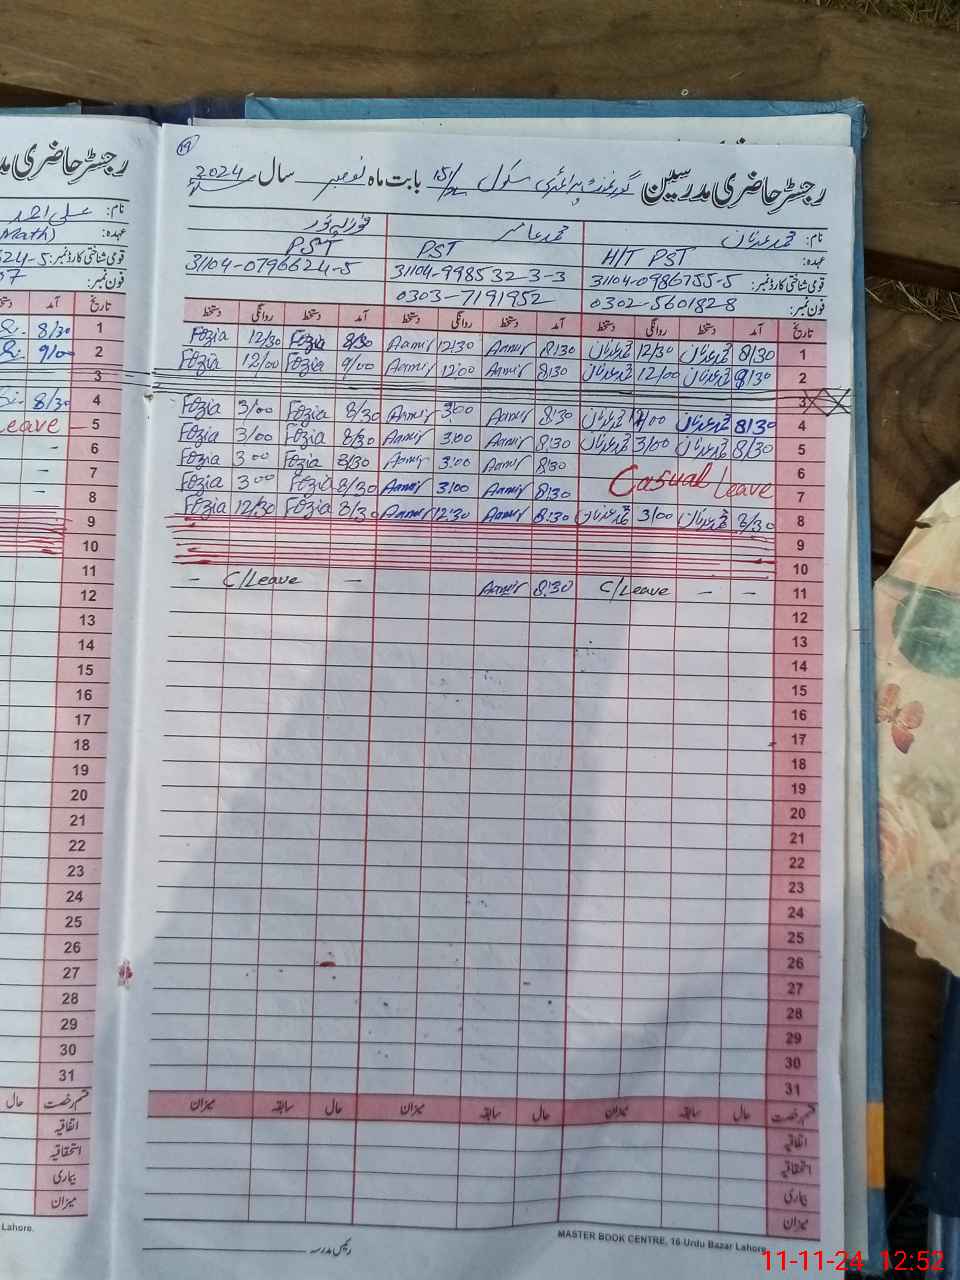 رجسٹر حاضری مدرسین گورنمنٹ پرائمری سکول 15/ بابت ماہ نومبر سال 2024
نام: محمد عدنان محمد عامر فوزیہ نور
عہدہ: H/T PST PST PST
قومی شناختی کارڈ نمبر: 31104-0986755-5 31104-9985323-3 31104-0796624-5
فون نمبر: 0302-5601828 0303-7191952
تاریخ آمد دستخط روانگی دستخط آمد دستخط روانگی دستخط آمد دستخط روانگی دستخط
1 8/30 محمد عدنان 12/30 محمد عدنان 8:30 Aamir 12:30 Aamir 8/30 Fozia 12/30 Fozia
2 8/30 محمد عدنان 12/00 محمد عدنان 8:30 Aamir 12:00 Aamir 9/00 Fozia 12/00 Fozia
3
4 8/30 محمد عدنان محمد عدنان 8:30 Aamir 3:00 Aamir 8/30 Fozia 3/00 Fozia
5 8/30 محمد عدنان 3/00 محمد عدنان 8:30 Aamir 3:00 Aamir 8/30 Fozia 3/00 Fozia
6 8:30 Aamir 3:00 Aamir 8/30 Fozia 3 00 Fozia
Casual Leave
7 8:30 Aamir 3:00 Aamir 8/30 Fozia 3 00 Fozia
8 8/30 محمد عدنان 3/00 محمد عدنان 8:30 Aamir 12:30 Aamir 8/30 Fozia 12/30 Fozia
9
10
11 – – C/Leave 8:30 Aamir – C/Leave –
12
13
14
15
16
17
18
19
20
21
22
23
24
25
26
27
28
29
30
31
قسم رخصت حال سابقہ میزان حال سابقہ میزان حال سابقہ میزان
اتفاقیہ
استحقاقیہ
بیماری
میزان
MASTER BOOK CENTRE, 16-Urdu Bazar Lahore.
رئیس مدرسہ
رجسٹر حاضری
نام: علی احمد
عہدہ: Math)
قومی شناختی کارڈ نمبر: 24-5
فون نمبر: 07
تاریخ آمد
1 8/30
2 9/00
3
4 8/30
5 Leave
6 –
7 –
8 –
9
10
11
12
13
14
15
16
17
18
19
20
21
22
23
24
25
26
27
28
29
30
31
قسم رخصت حال
اتفاقیہ
استحقاقیہ
بیماری
میزان
Lahore.
11-11-24 12:52